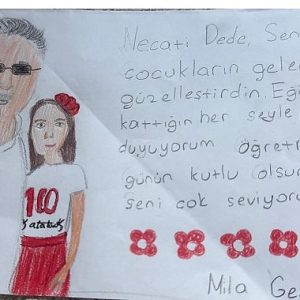 Necati Dede, Sen
çocukların gele
güzelleştirdin. Eğ
kattığın her şeyle
duyuyorum öğret
günün kutlu olsu
seni çok seviyor
100
Mila Ge